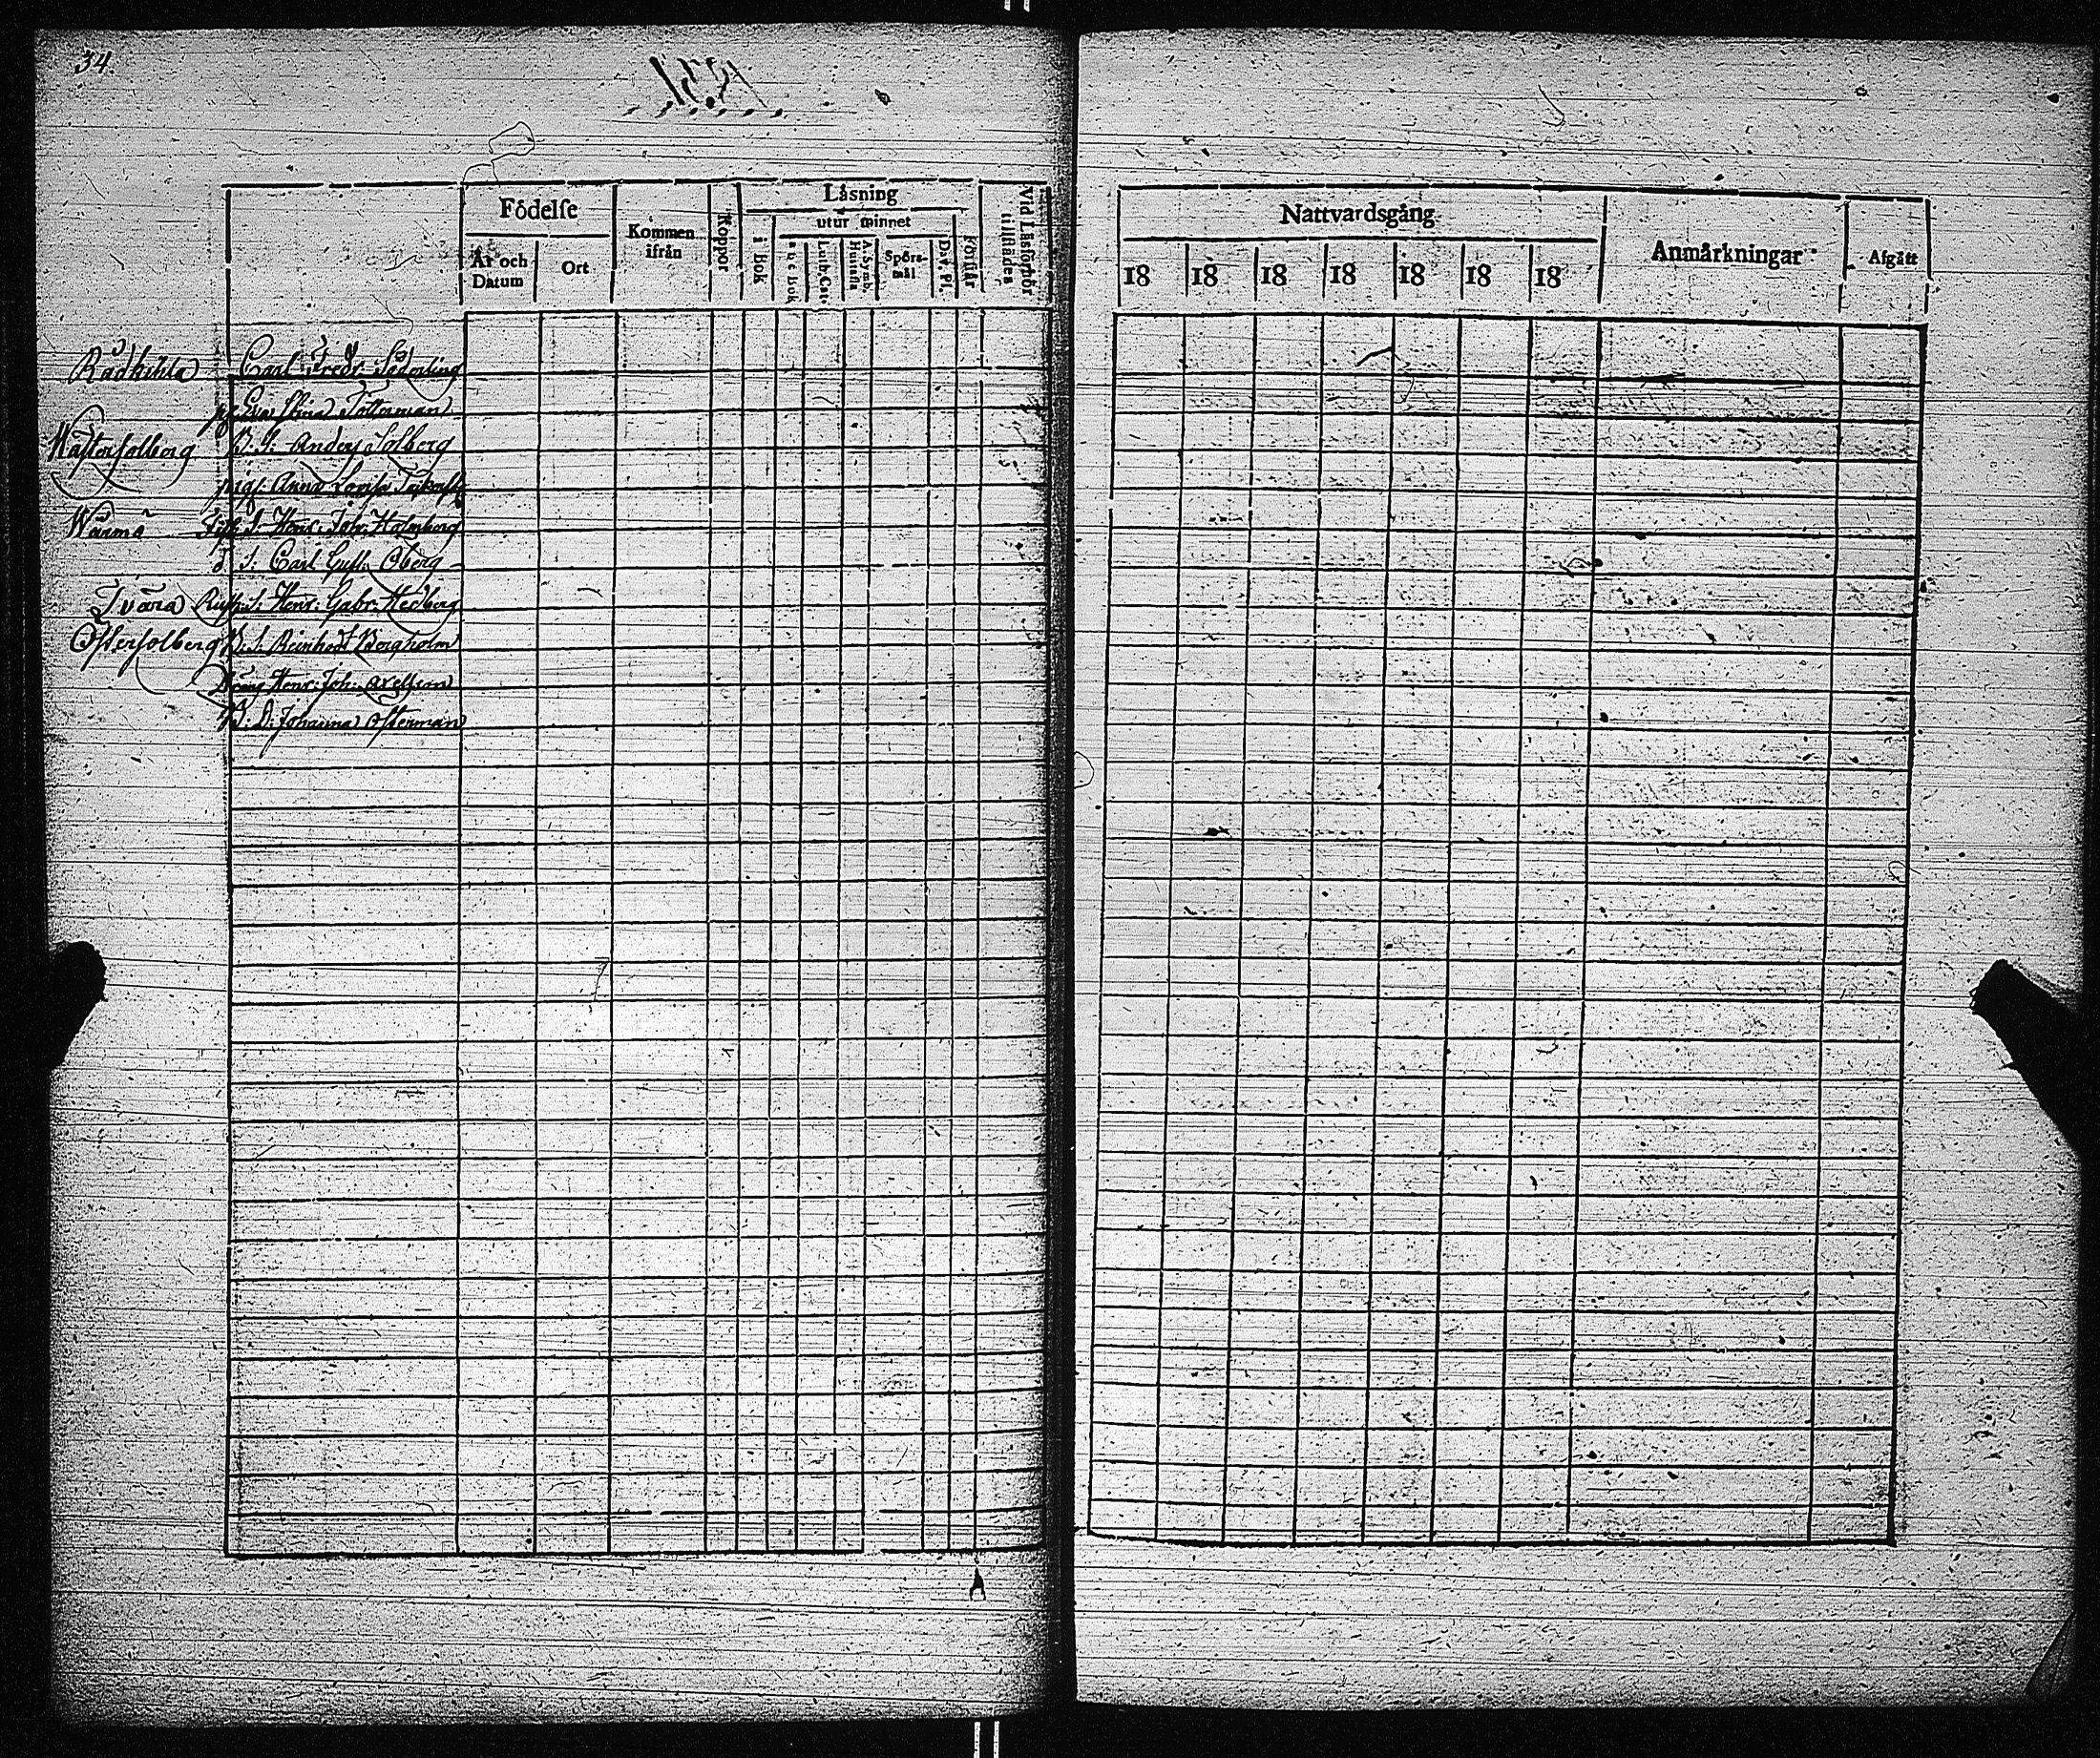 34.
Födelse
År och Datum
Ort
Kommen ifrån
Koppor
Läsning
i Bok
utur minnet
a b c Bok
Luth. Cat.
A. Symb. Hustafla
Spörsmål
Dav. Ps.
Förstår
Vid Läsförhör tillstädes
Nattvardsgång
18 18 18 18 18 18 18
Anmärkningar
Afgått
Rådkihla Carl Fredr. Söderling
pg. Eva Stina Totterman
Wästersolberg B. S. Anders Solberg
pig. Anna Lovisa
Wärmö S. Henr. Joh. Holmberg
S. Carl Gust. Öberg
Tvära Rusth. S. Henr. Gabr. Hedberg
Östersolberg B. S. Reinhold Bergholm
Dräng Henr. Joh. Axelsson
B. D. Johanna Österman